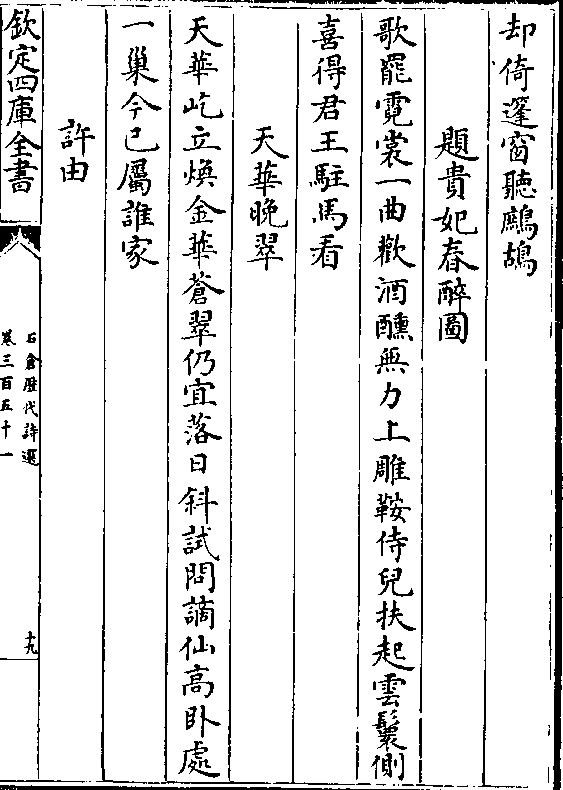 却倚篷窗聽鷓鴣
題貴妃春醉圖
歌罷霓裳一曲歡酒醺無力上雕鞍侍兒扶起雲鬟側
喜得君王駐馬看
天華晚翠
天華屹立煥金華蒼翠仍宜落日斜試問謫仙高卧處
一巢今已屬誰家
許由
欽定四庫全書
石倉歷代詩選
卷三百五十一
十九